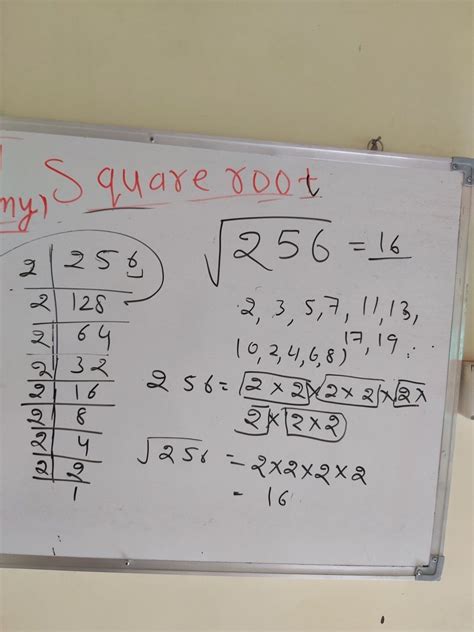 Square root
my)
2 | 256
2 | 128
2 | 64
2 | 32
2 | 16
2 | 8
2 | 4
2 | 2
1
√256 = 16
2, 3, 5, 7, 11, 13,
17, 19
(0, 2, 4, 6, 8)
256 = 2 × 2 × 2 × 2 × 2 ×
2 × 2 × 2
√256 = 2×2×2×2
= 16